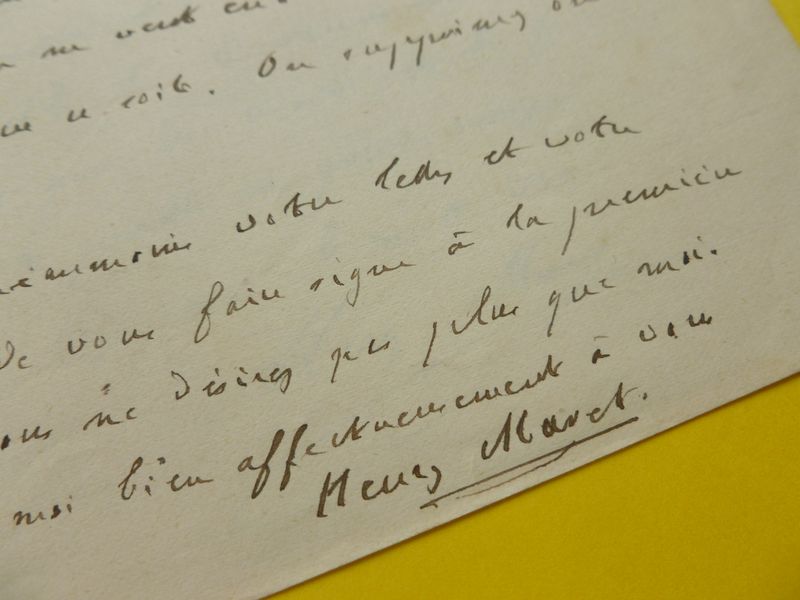 ne veut en
ce soit. On supprimez on
néanmoins votre lettre et votre
de vous faire signe à la première
ous ne désirez pas plus que moi.
moi bien affectueusement à vous
Henry Maret.